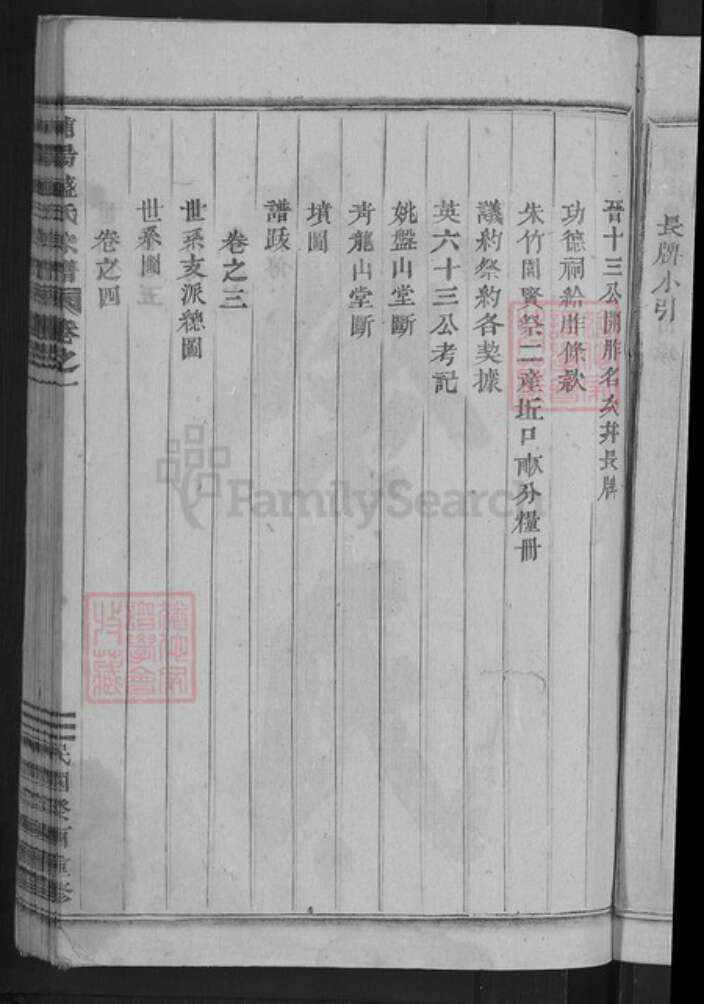 長牌小引
晉十三公開胙名次并長牌
功德祠給胙條款
朱竹園賢祭二產坵口畝分糧冊
議約祭約各契據
英六十三公考記
姚盤山堂斷
青龍山堂斷
墳圖
譜跋
卷之三
世系支派總圖
世系圖
卷之四
盛氏宗譜 卷之一
民國癸酉重修
FamilySearch